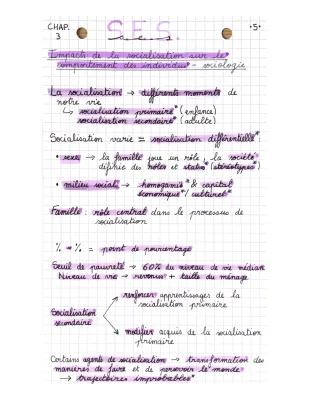 CHAP. 3
S.E.S.
•5•
Impacts de la socialisation sur le
comportement des individus - sociologie
La socialisation → différents moments de
notre vie
↳ socialisation primaire* (enfance)
socialisation secondaire* (adulte)
Socialisation varie = socialisation différentielle*
• sexe → la famille joue un rôle la société
définie des rôles et status* (stéréotypes*)
• milieu social → homogamie* & capital
économique*/ culturel*
Famille rôle central dans le processus de
socialisation
% → % = point de pourcentage
Seuil de pauvreté → 60% du niveau de vie médian
Niveau de vie → revenus* + taille du ménage
renforcer apprentissages de la
socialisation primaire
Socialisation
secondaire
modifier acquis de la socialisation
primaire
Certains agents de socialisation → transformation des
manières de faire et de percevoir le monde
→ trajectoires improbables*